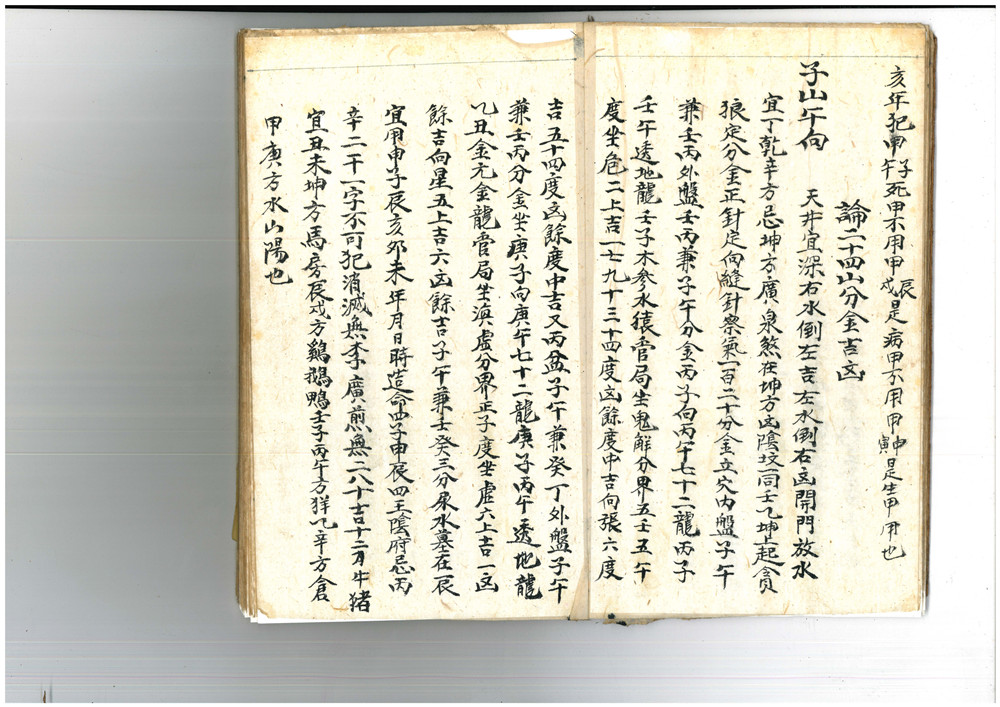 亥年犯甲子甲午死甲不用甲辰甲戌是病甲不用甲申甲寅是生甲用也
論二十四山分金吉凶
子山午向 天井宜深右水倒左吉左水倒右凶開門放水
宜丁乾辛方忌坤方廣泉煞在坤方凶陰坟一同壬乙坤上起貪
狼定分金正針定向縫針察氣一百二十分金立穴內盤子午
兼壬丙外盤壬丙兼子午分金丙子向丙午七十二龍丙子
壬午透地龍壬子木参水猿管局坐鬼解分界五壬五午
度坐危二上吉一七九十三十四度凶餘度中吉向張六度
吉五十四度凶餘度中吉又丙盆子午兼癸丁外盤子午
兼壬丙分金坐庚子向庚午七十二龍庚子丙午透地龍
乙丑金亢金龍管局坐滇虛分界正子度坐虛六上吉一凶
餘吉向星五上吉六凶餘吉子午兼壬癸三分屎水墓在辰
宜用申子辰亥夘未年月日時造命四子申辰四王陰府忌丙
辛二干一字不可犯消滅無李廣煎無二八十吉十二月牛猪
宜丑未坤方馬房辰戌方鷄鵝鴨壬子丙午方羊乙辛方倉
甲庚方水山陽也